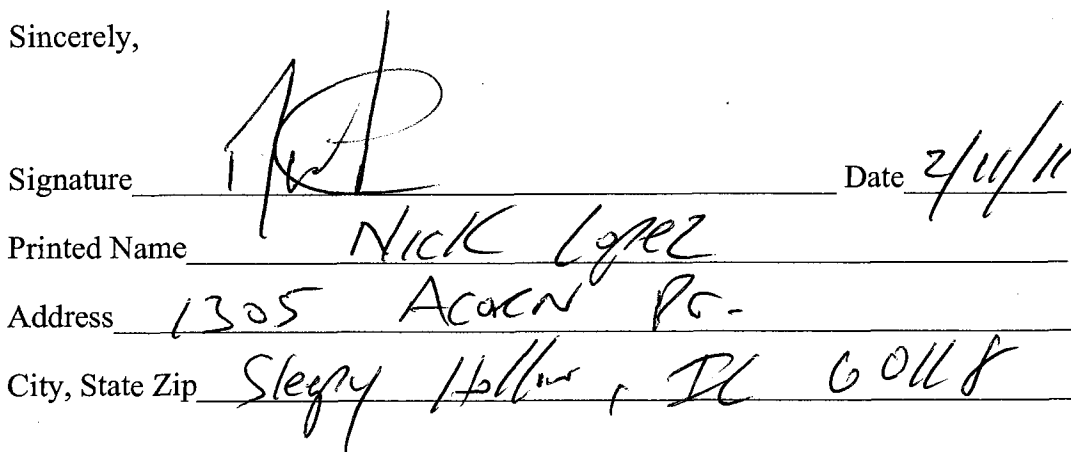 Sincerely,
Signature Date 2/11/11
Printed Name Nick Lopez
Address 1305 Acorn
City, State Zip Sleepy Hollow, IL 60118